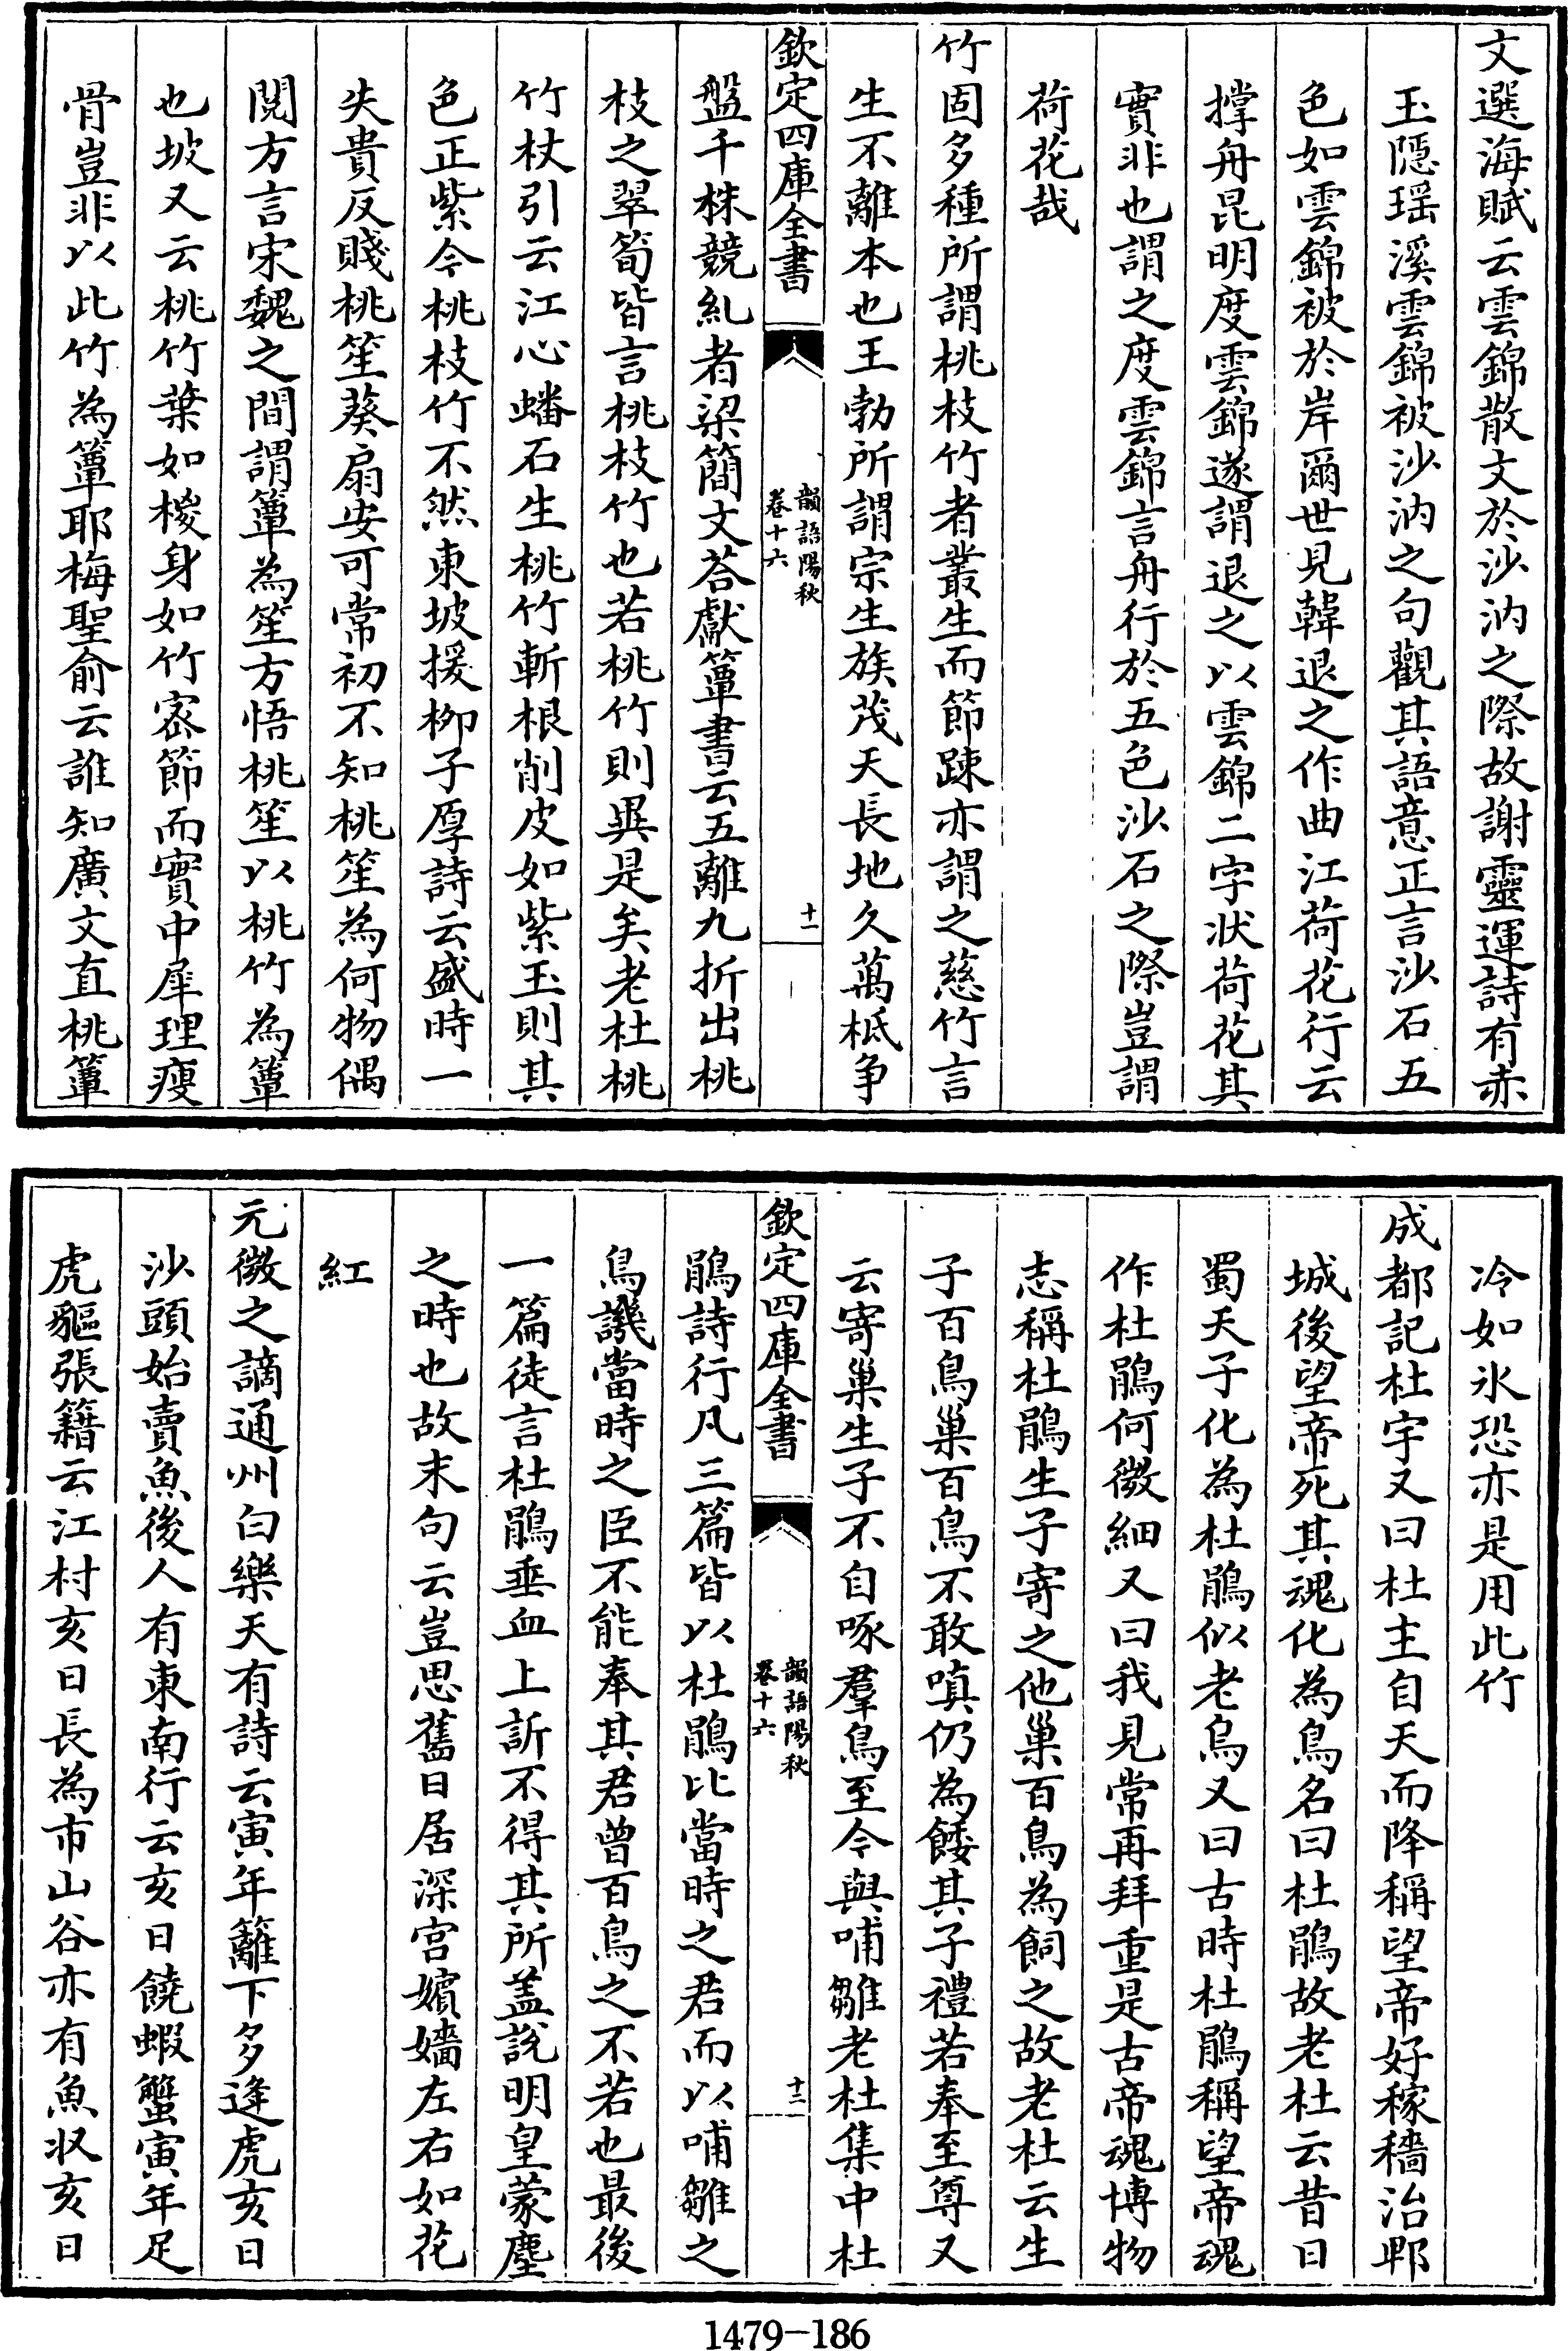 文選海賦云雲錦散文於沙汭之際故謝靈運詩有赤
玉隱瑶溪雲錦被沙汭之句觀其語意正言沙石五
色如雲錦被於岸爾世見韓退之作曲江荷花行云
撐舟昆明度雲錦遂謂退之以雲錦二字狀荷花其
實非也謂之度雲錦言舟行於五色沙石之際豈謂
荷花哉
竹固多種所謂桃枝竹者叢生而節踈亦謂之慈竹言
生不離本也王勃所謂宗生族茂天長地久萬柢争
欽定四庫全書
韻語陽秋
卷十六
十一
盤千株競糺者梁簡文荅獻簟書云五離九折出桃
枝之翠筍皆言桃枝竹也若桃竹則異是矣老杜桃
竹杖引云江心蟠石生桃竹斬根削皮如紫玉則其
色正紫今桃枝竹不然東坡援柳子厚詩云盛時一
失貴反賤桃笙葵扇安可常初不知桃笙為何物偶
閱方言宋魏之間謂簟為笙方悟桃笙以桃竹為簟
也坡又云桃竹葉如椶身如竹宻節而實中犀理瘦
骨豈非以此竹為簟耶梅聖俞云誰知廣文直桃簟
冷如氷恐亦是用此竹
成都記杜宇又曰杜主自天而降稱望帝好稼穡治郫
城後望帝死其魂化為鳥名曰杜鵑故老杜云昔日
蜀天子化為杜鵑似老烏又曰古時杜鵑稱望帝魂
作杜鵑何微細又曰我見常再拜重是古帝魂博物
志稱杜鵑生子寄之他巢百鳥為飼之故老杜云生
子百鳥巢百鳥不敢嗔仍為餧其子禮若奉至尊又
云寄巢生子不自啄羣鳥至今與哺雛老杜集中杜
欽定四庫全書
韻語陽秋
卷十六
十二
鵑詩行凡三篇皆以杜鵑比當時之君而以哺雛之
鳥譏當時之臣不能奉其君曾百鳥之不若也最後
一篇徒言杜鵑垂血上訴不得其所盖説明皇蒙塵
之時也故末句云豈思舊日居深宫嬪嬙左右如花
紅
元微之謫通州白樂天有詩云寅年籬下多逢虎亥日
沙頭始賣魚後人有東南行云亥日饒蝦蟹寅年足
虎貙張籍云江村亥日長為市山谷亦有魚收亥日
1479-186